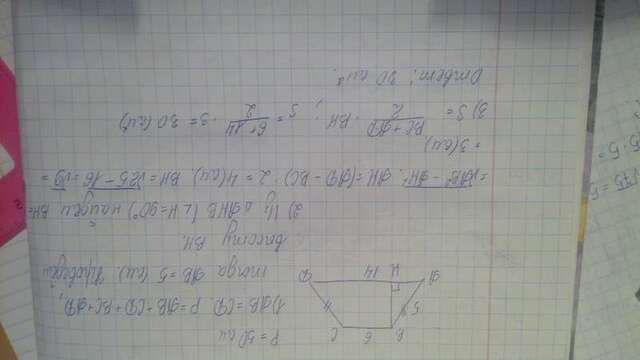 P = 30 см
B 6 C
5
A H 14 D
1) AB = CD. P = AB + CD + BC + AD,
тогда AB = 5 (см) Проведём
высоту BH.
2) Из △ AHB (∠H = 90°) найдём BH =
= √AB² - AH². AH = (AD - BC) : 2 = 4 (см). BH = √25 - 16 = √9 =
= 3 (см)
3) S = BC + AD / 2 · BH ; S = 6 + 14 / 2 · 3 = 30 (см²)
Ответ: 30 см².
√75 = 5
5 · 5 =